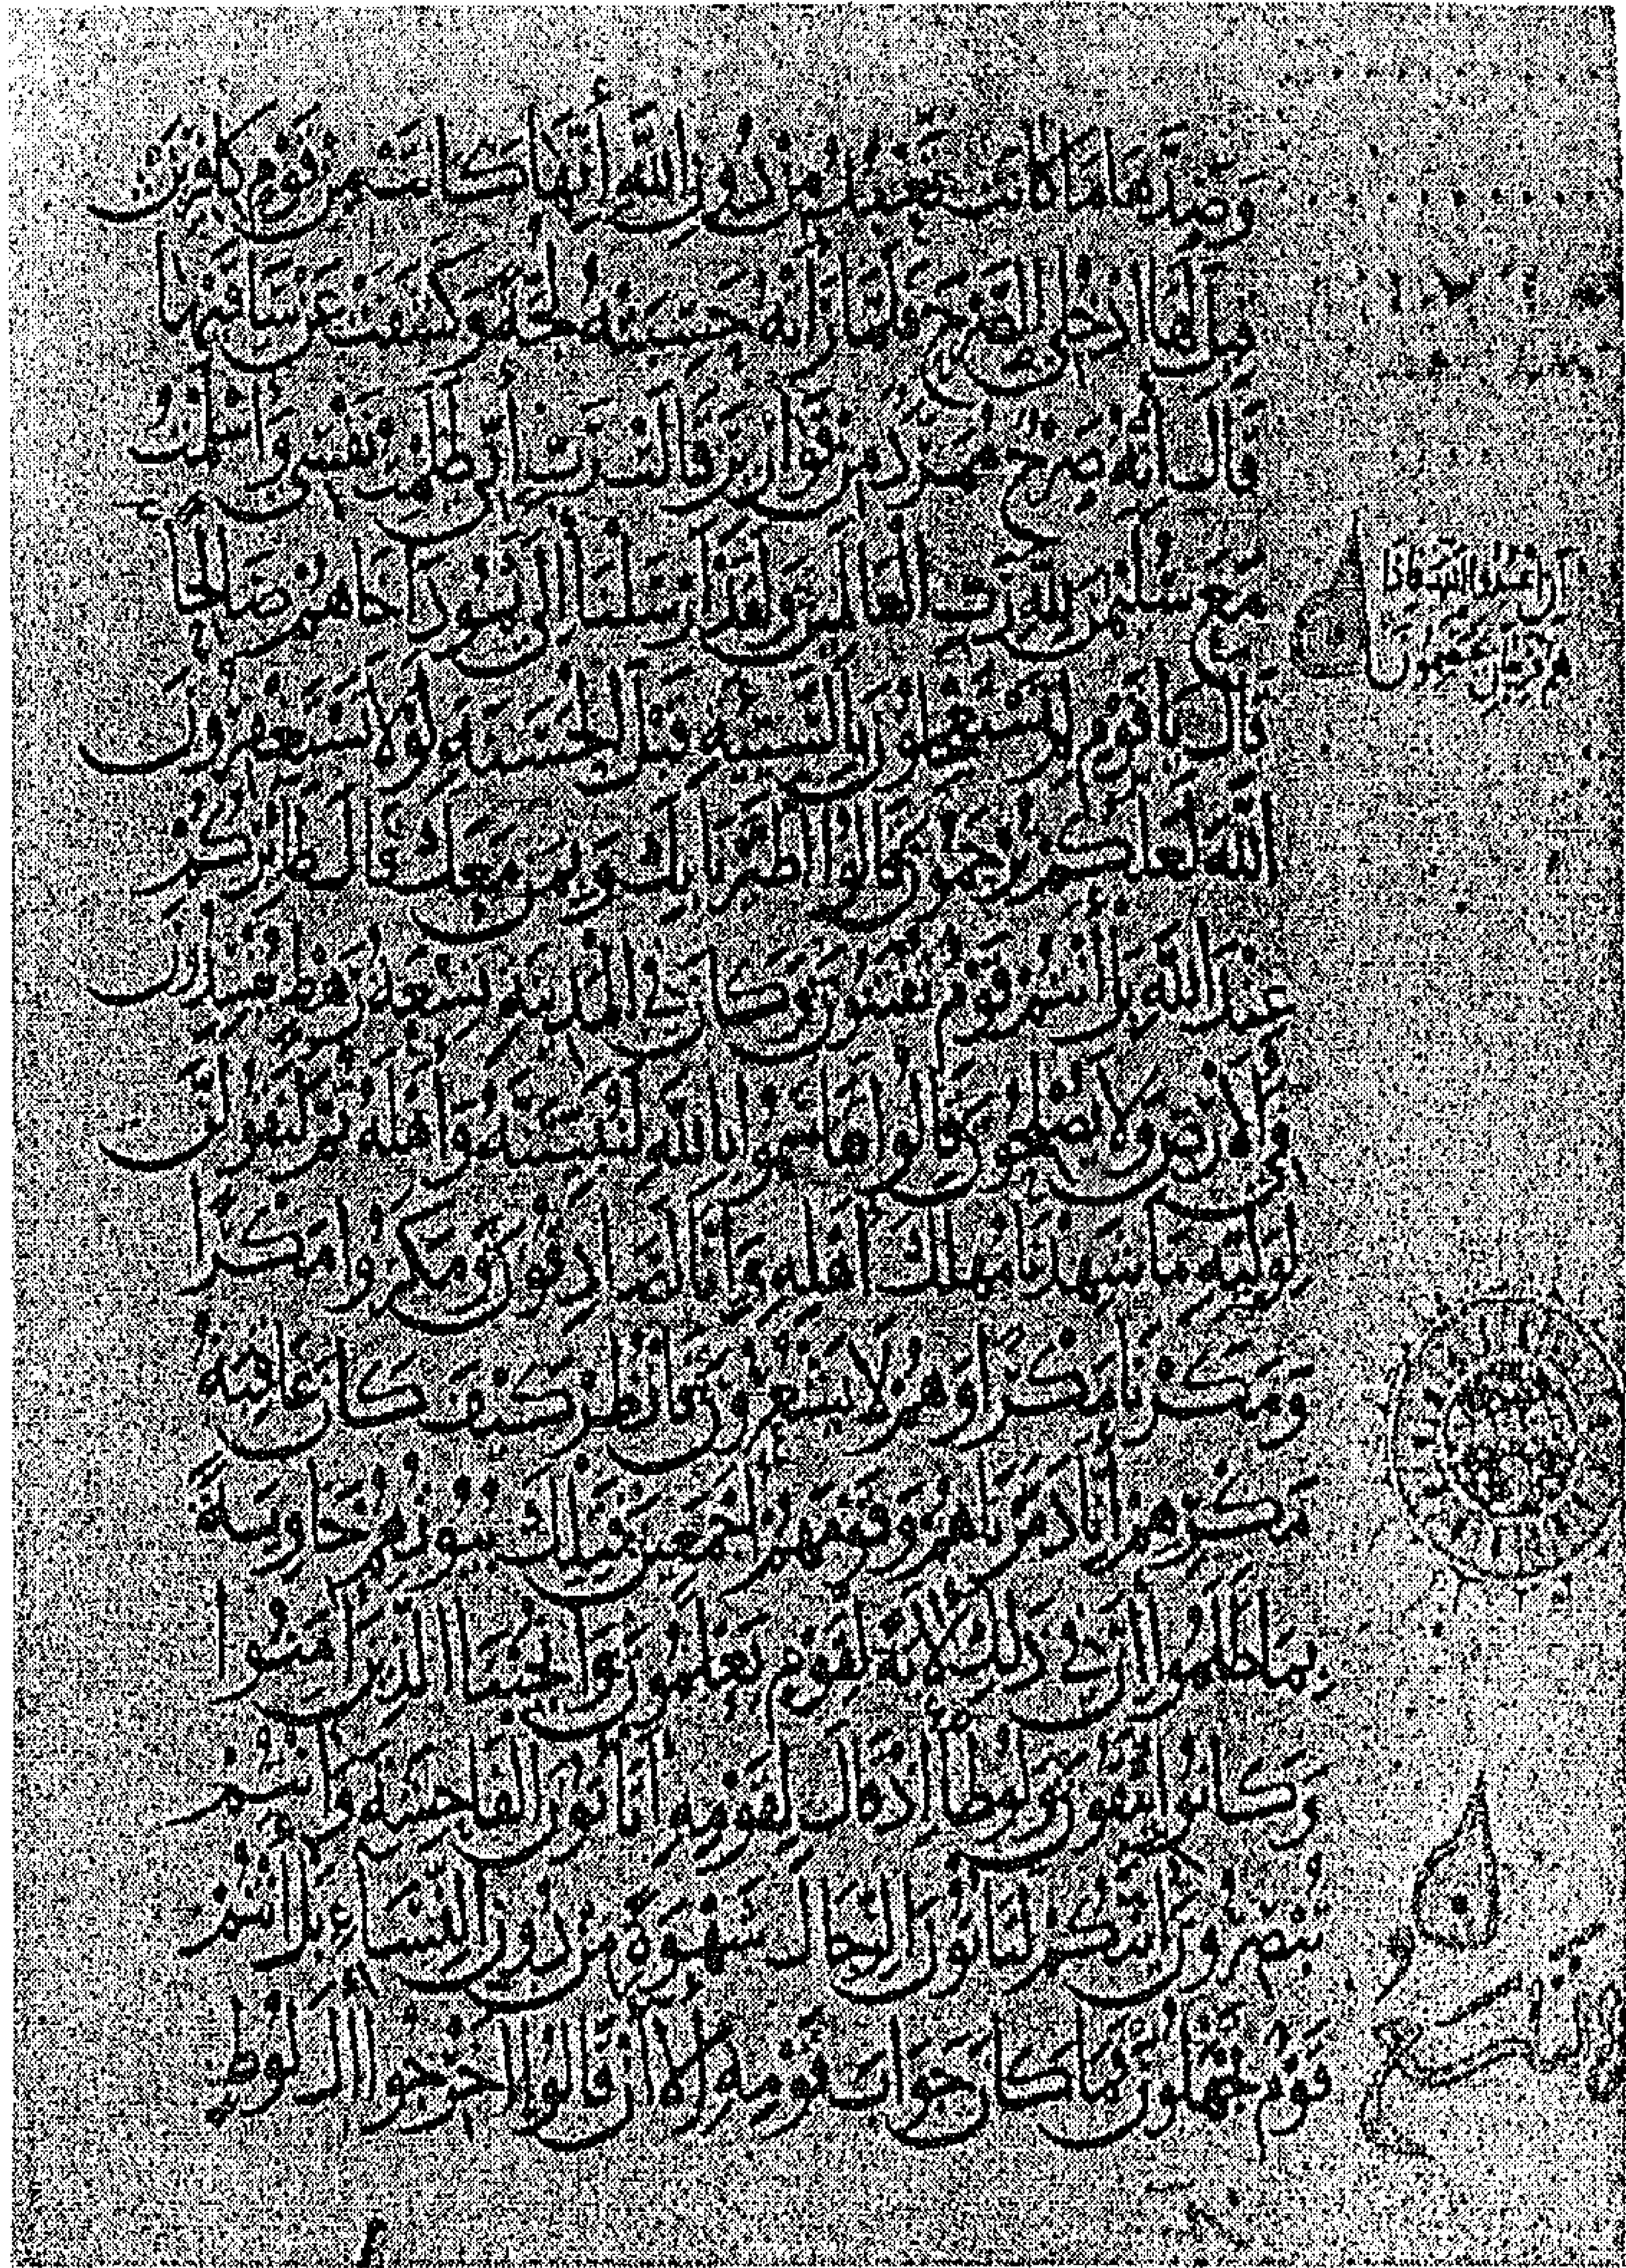 وَصَدَّهَا مَا كَانَت تَّعْبُدُ مِن دُونِ اللَّهِ إِنَّهَا كَانَتْ مِن قَوْمٍ كَافِرِينَ
قِيلَ لَهَا ادْخُلِي الصَّرْحَ فَلَمَّا رَأَتْهُ حَسِبَتْهُ لُجَّةً وَكَشَفَتْ عَن سَاقَيْهَا
قَالَ إِنَّهُ صَرْحٌ مُمَرَّدٌ مِن قَوَارِيرَ قَالَتْ رَبِّ إِنِّي ظَلَمْتُ نَفْسِي وَأَسْلَمْتُ
مَعَ سُلَيْمَنَ لِلَّهِ رَبِّ الْعَالَمِينَ وَلَقَدْ أَرْسَلْنَا إِلَى ثَمُودَ أَخَاهُمْ صَالِحًا
قَالَ يَا قَوْمِ لِمَ تَسْتَعْجِلُونَ بِالسَّيِّئَةِ قَبْلَ الْحَسَنَةِ لَوْلَا تَسْتَغْفِرُونَ
اللَّهَ لَعَلَّكُمْ تُرْحَمُونَ قَالُوا اطَّيَّرْنَا بِكَ وَبِمَن مَعَكَ قَالَ طَائِرُكُمْ
عِنْدَ اللَّهِ بَلْ أَنتُمْ قَوْمٌ تُفْتَنُونَ وَكَانَ فِي الْمَدِينَةِ تِسْعَةُ رَهْطٍ يُفْسِدُونَ
فِي الْأَرْضِ وَلَا يُصْلِحُونَ قَالُوا تَقَاسَمُوا بِاللَّهِ لَنُبَيِّتَنَّهُ وَأَهْلَهُ ثُمَّ لَنَقُولَنَّ
لِوَلِيِّهِ مَا شَهِدْنَا مَهْلِكَ أَهْلِهِ وَإِنَّا لَصَادِقُونَ وَمَكَرُوا مَكْرًا
وَمَكَرْنَا مَكْرًا وَهُمْ لَا يَشْعُرُونَ فَانظُرْ كَيْفَ كَانَ عَاقِبَةُ
مَكْرِهِمْ أَنَّا دَمَّرْنَاهُمْ وَقَوْمَهُمْ أَجْمَعِينَ فَتِلْكَ بُيُوتُهُمْ خَاوِيَةً
بِمَا ظَلَمُوا إِنَّ فِي ذَلِكَ لَآيَةً لِقَوْمٍ يَعْلَمُونَ وَأَنجَيْنَا الَّذِينَ آمَنُوا
وَكَانُوا يَتَّقُونَ وَلُوطًا إِذْ قَالَ لِقَوْمِهِ أَتَأْتُونَ الْفَاحِشَةَ وَأَنتُمْ
تُبْصِرُونَ أَئِنَّكُمْ لَتَأْتُونَ الرِّجَالَ شَهْوَةً مِن دُونِ النِّسَاءِ بَلْ أَنتُمْ
قَوْمٌ تَجْهَلُونَ فَمَا كَانَ جَوَابَ قَوْمِهِ إِلَّا أَن قَالُوا أَخْرِجُوا آلَ لُوطٍ